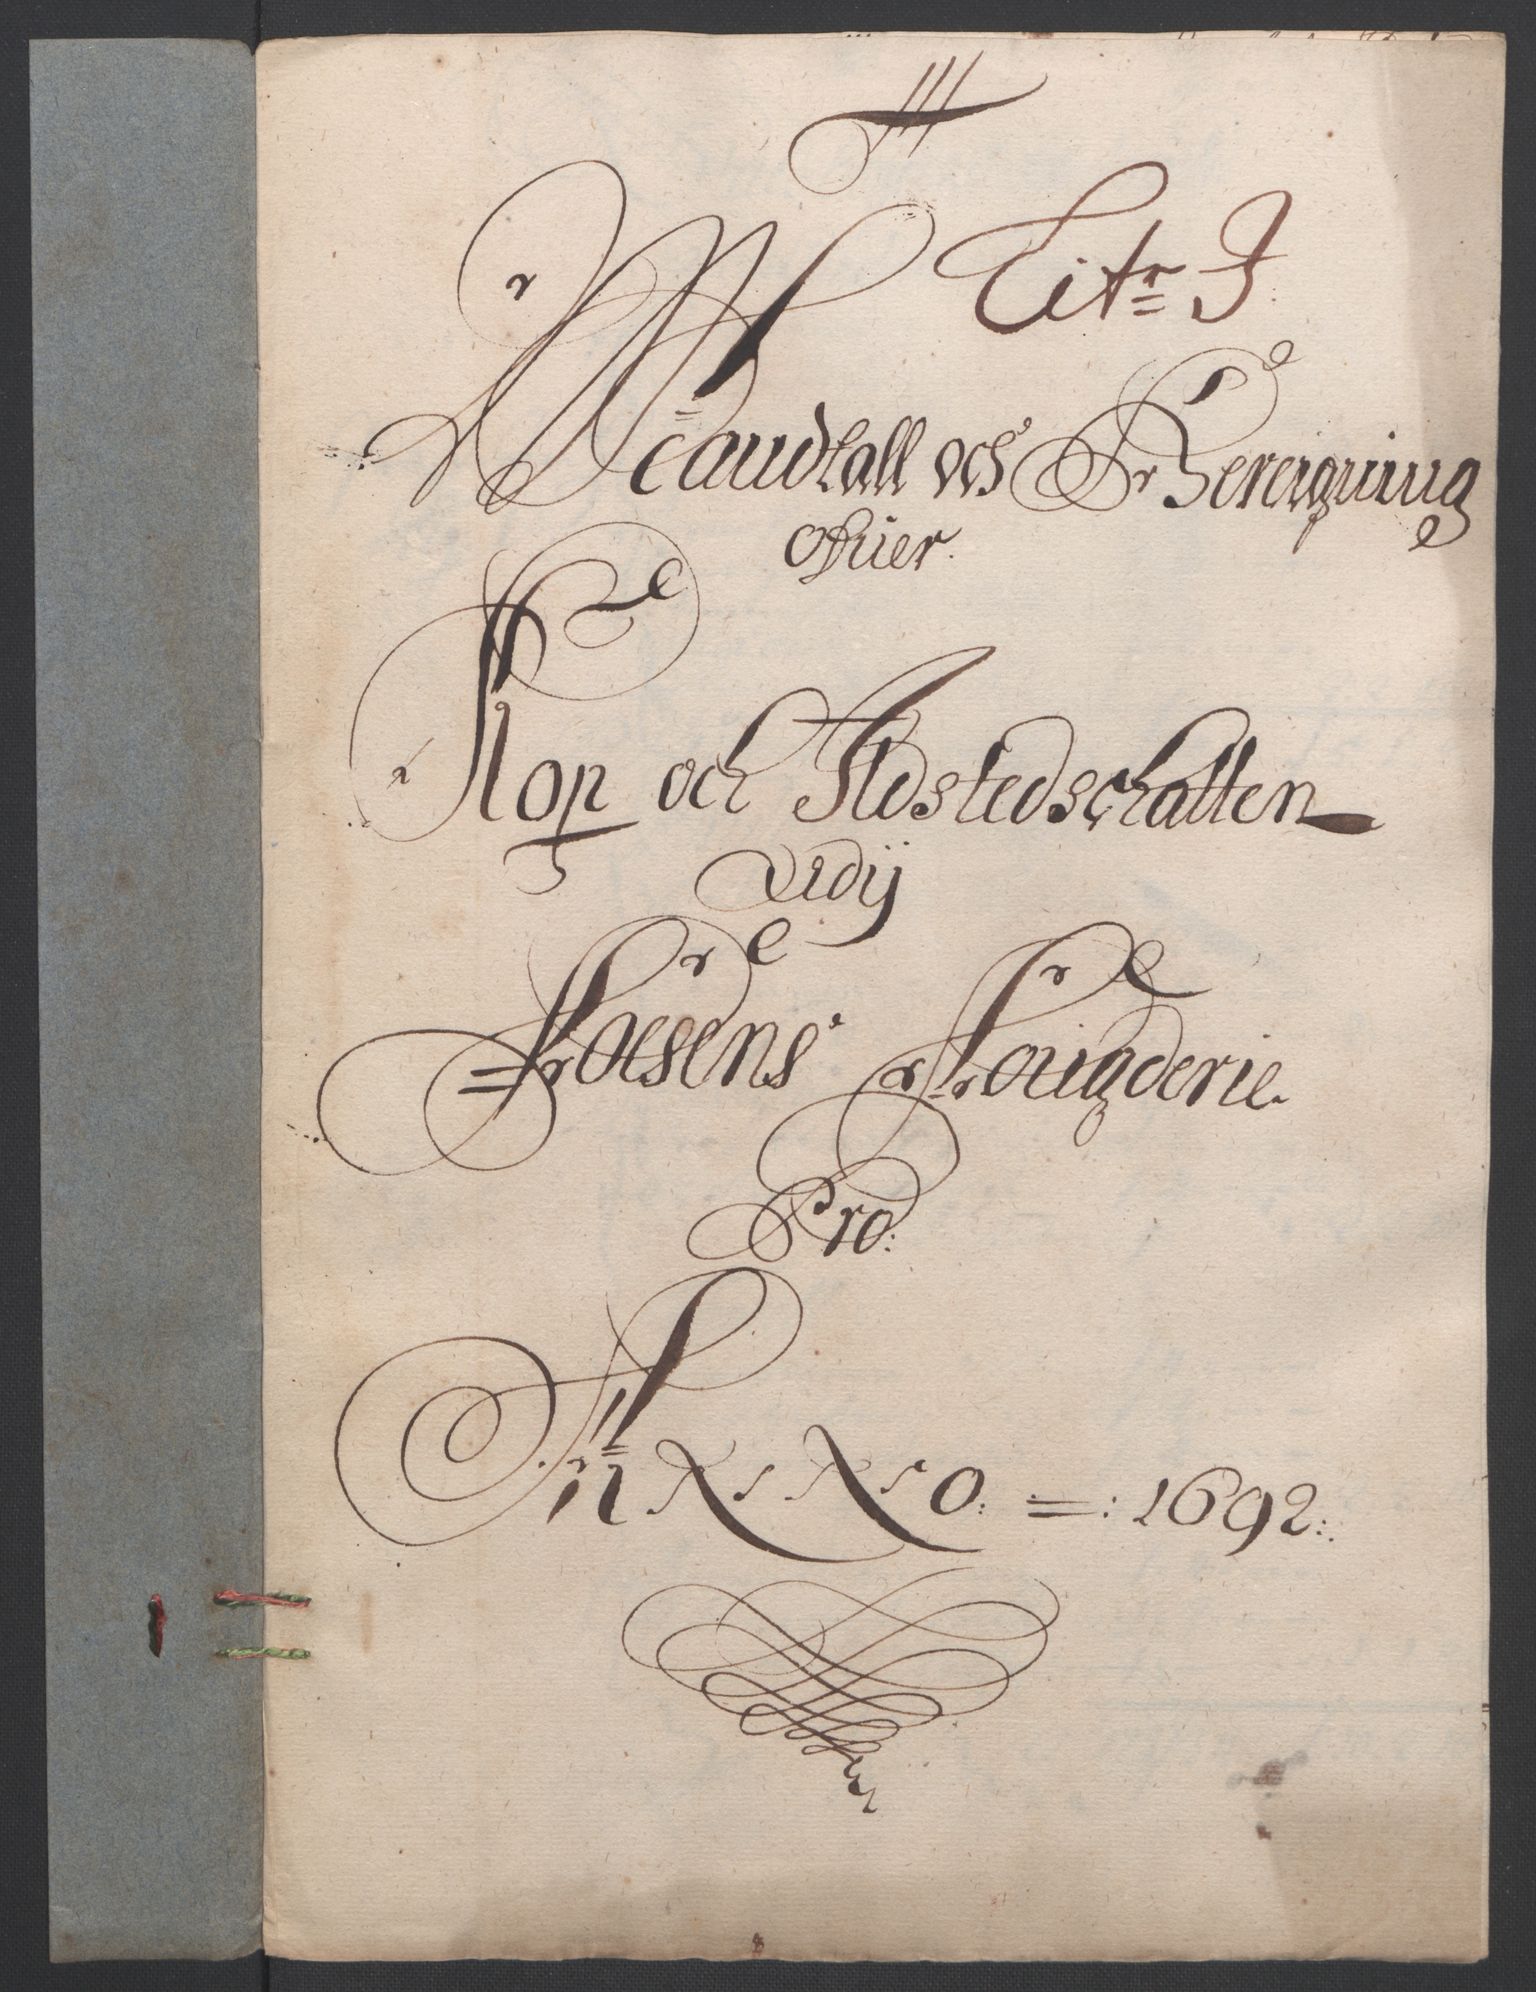 Litr I
Mandtall och Beregning
ofuer
Kop och Ildstedschatten
udij
Fosens Fougderie
Pro:
ANNO: =: 1692: